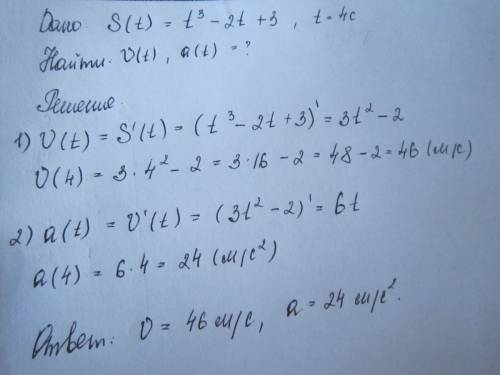 Дано: S(t) = t³ - 2t + 3 , t = 4c
Найти: υ(t) , a(t) = ?
Решение:
1) υ(t) = S'(t) = (t³ - 2t + 3)' = 3t² - 2
υ(4) = 3 · 4² - 2 = 3 · 16 - 2 = 48 - 2 = 46 (м/с)
2) a(t) = υ'(t) = (3t² - 2)' = 6t
a(4) = 6 · 4 = 24 (м/с²)
Ответ: υ = 46 м/с, a = 24 м/с².